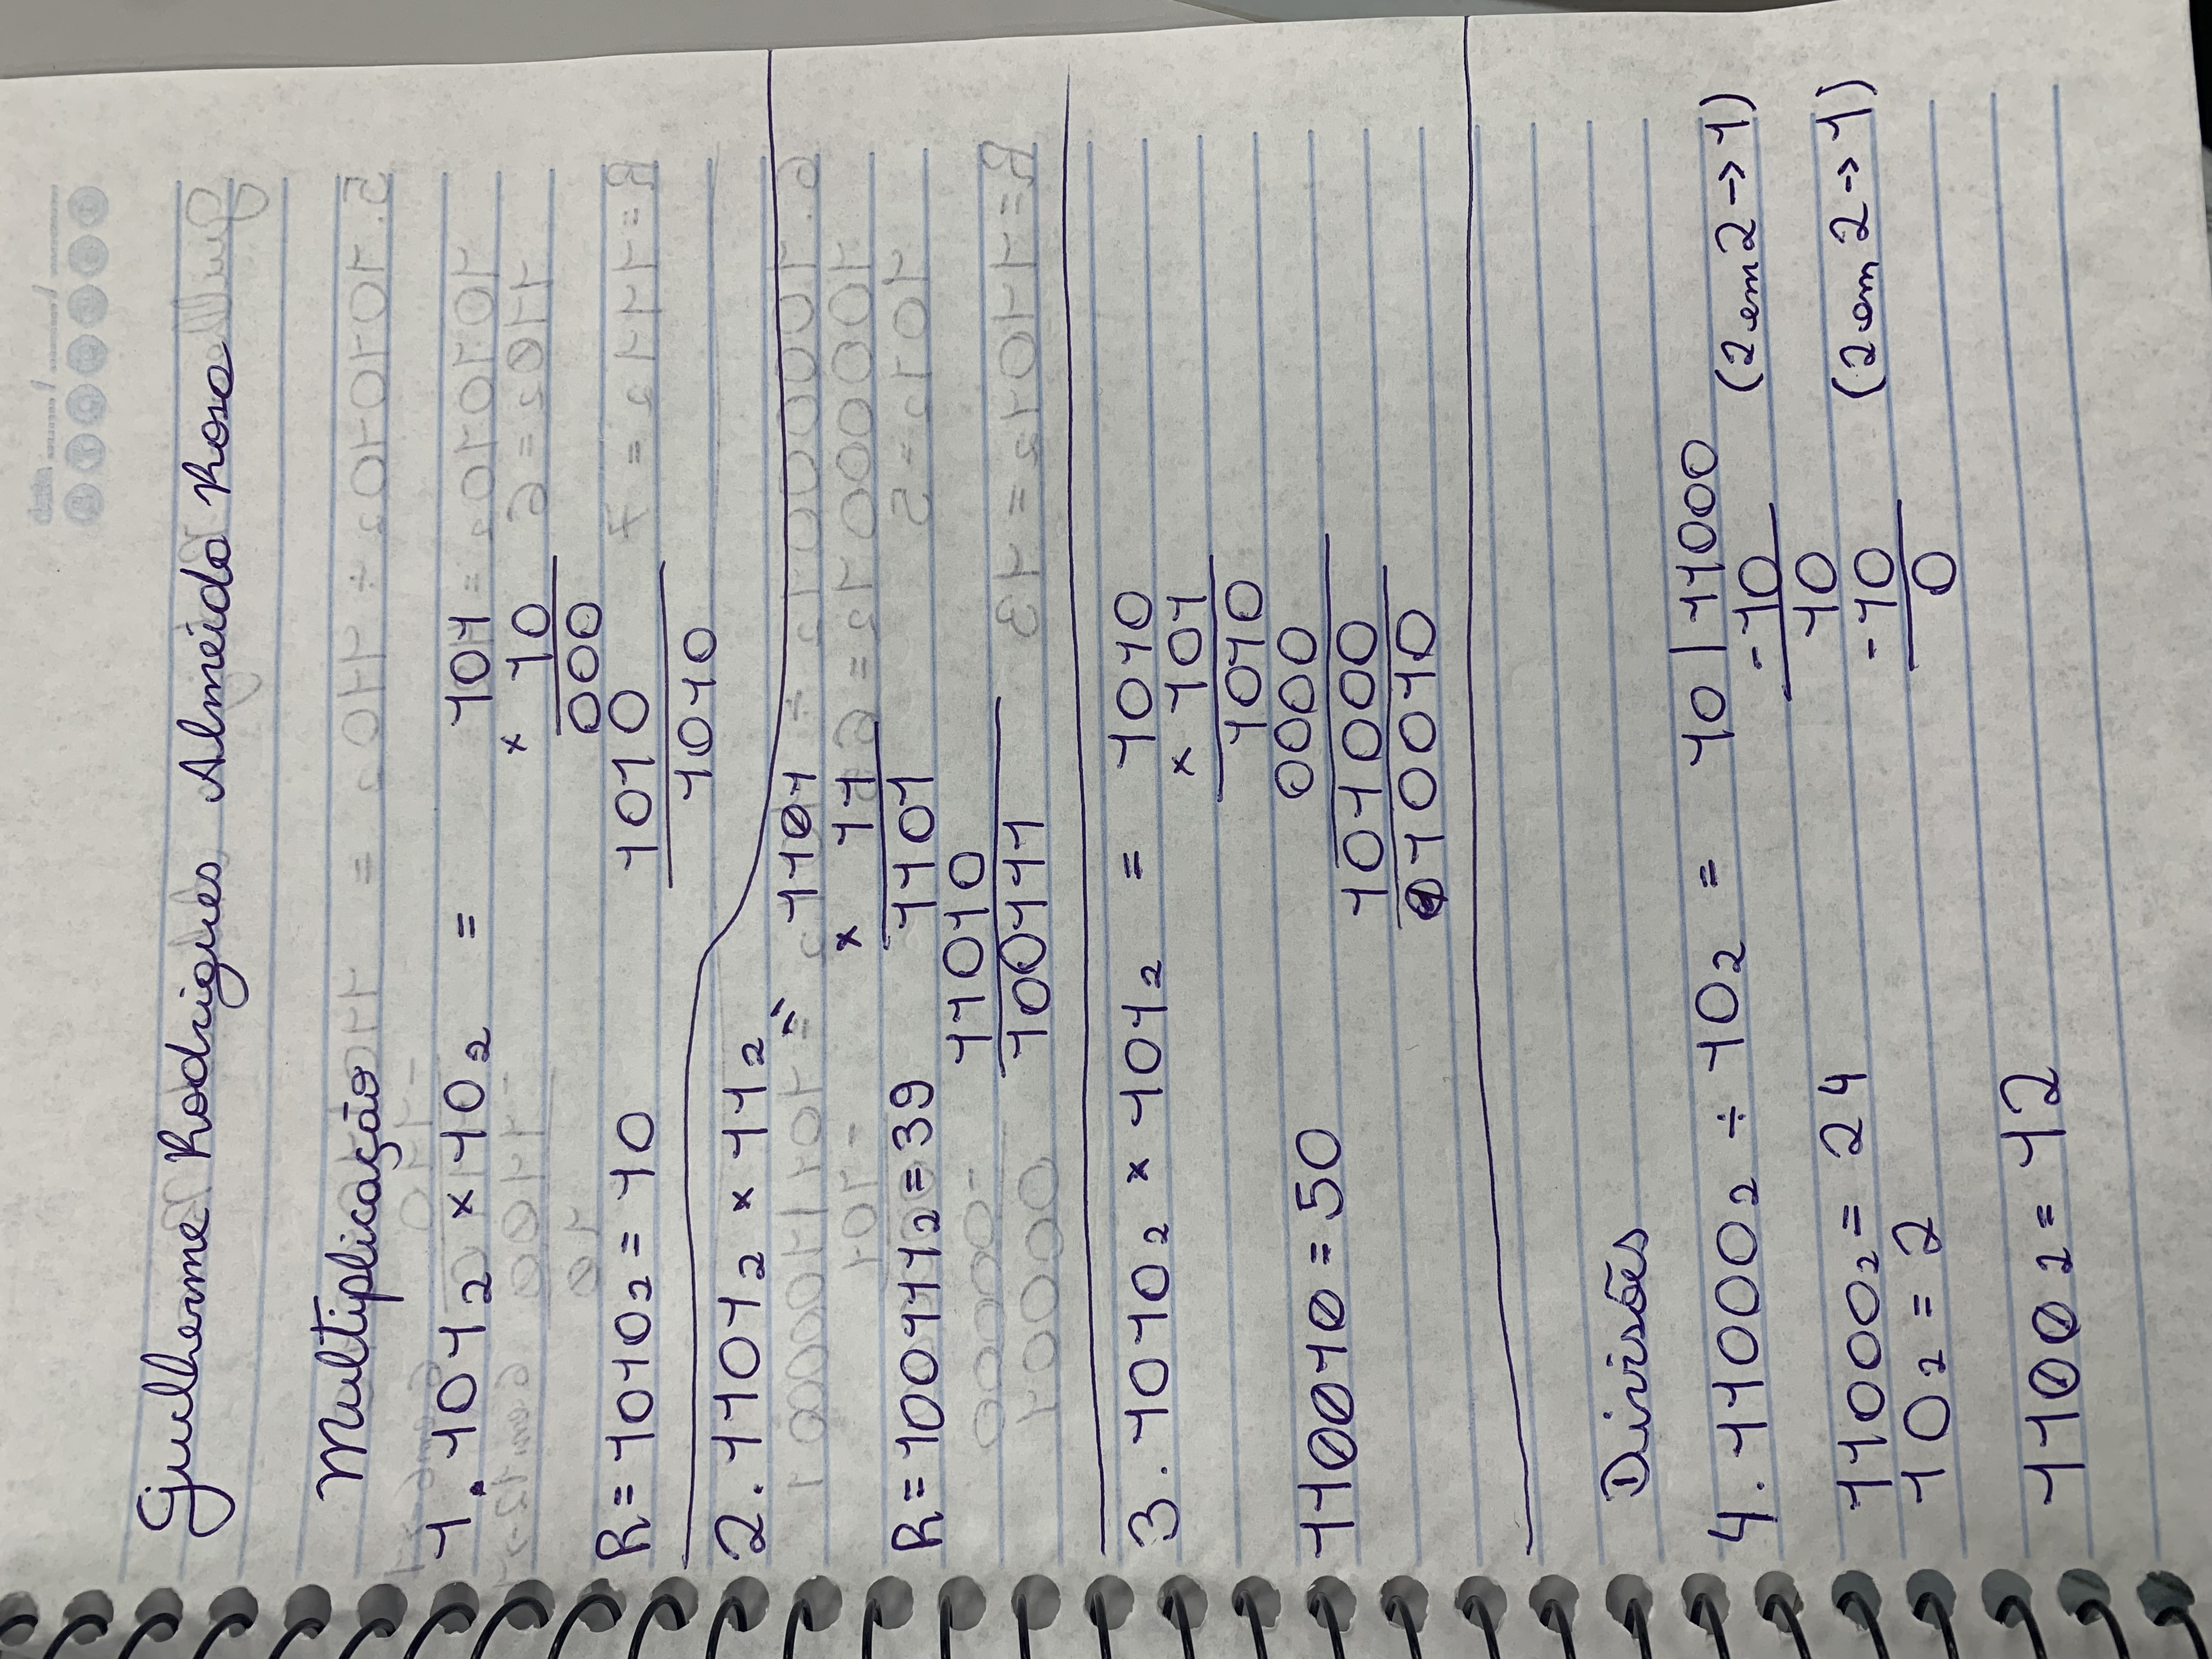 Guilherme Rodrigues Almeida Rosa
Multiplicação
1. 101₂ × 10₂ = 101
× 10
000
R = 1010₂ = 10 1010
1010
2. 1101₂ × 11₂ = 1101
× 11
R = 100111₂ = 39 1101
11010
100111
3. 1010₂ × 101₂ = 1010
× 101
1010
0000
110010 = 50
101000
110010
Divisões
4. 11000₂ ÷ 10₂ = 10 | 11000
-10 (2 em 2 → 1)
10
11000₂ = 24 -10 (2 em 2 → 1)
10₂ = 2 0
1100₂ = 12